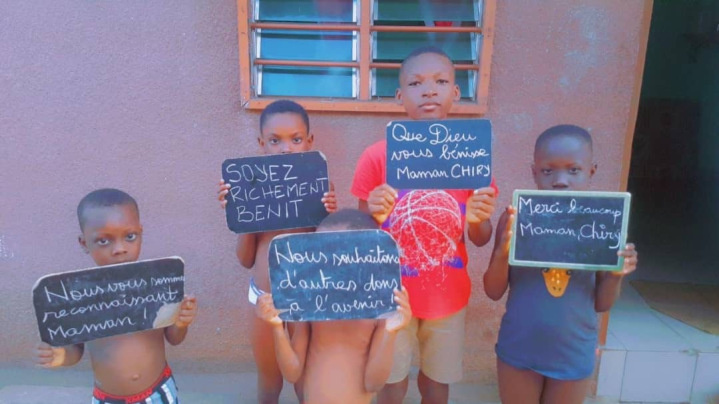 Nous vous somme
reconnaissant
Maman !
SOYEZ
RICHEMENT
BENIT
Nous souhaitons
d'autres dons
à l'avenir !
Que Dieu
vous bénisse
Maman CHIRY
Merci beaucoup
Maman, Chiry